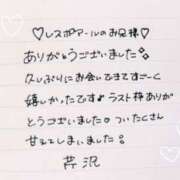 ♡レスポアールのお兄様♡
ありがとうございました✨
久しぶりにお会いできてすごーく
嬉しかったです♪ラスト枠ありが
とうございました。ついたくさん
甘えてしまいました!
芹沢